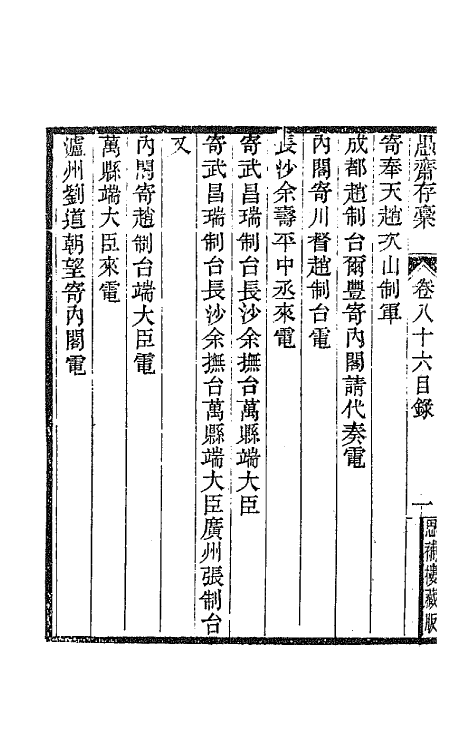 愚齋存稾
卷八十六目錄
一
思補樓藏版
寄奉天趙次山制軍
成都趙制台爾豐寄內閣請代奏電
內閣寄川督趙制台電
長沙余壽平中丞來電
寄武昌瑞制台長沙余撫台萬縣端大臣
寄武昌瑞制台長沙余撫台萬縣端大臣廣州張制台
又
內閣寄趙制台端大臣電
萬縣端大臣來電
瀘州劉道朝望寄內閣電